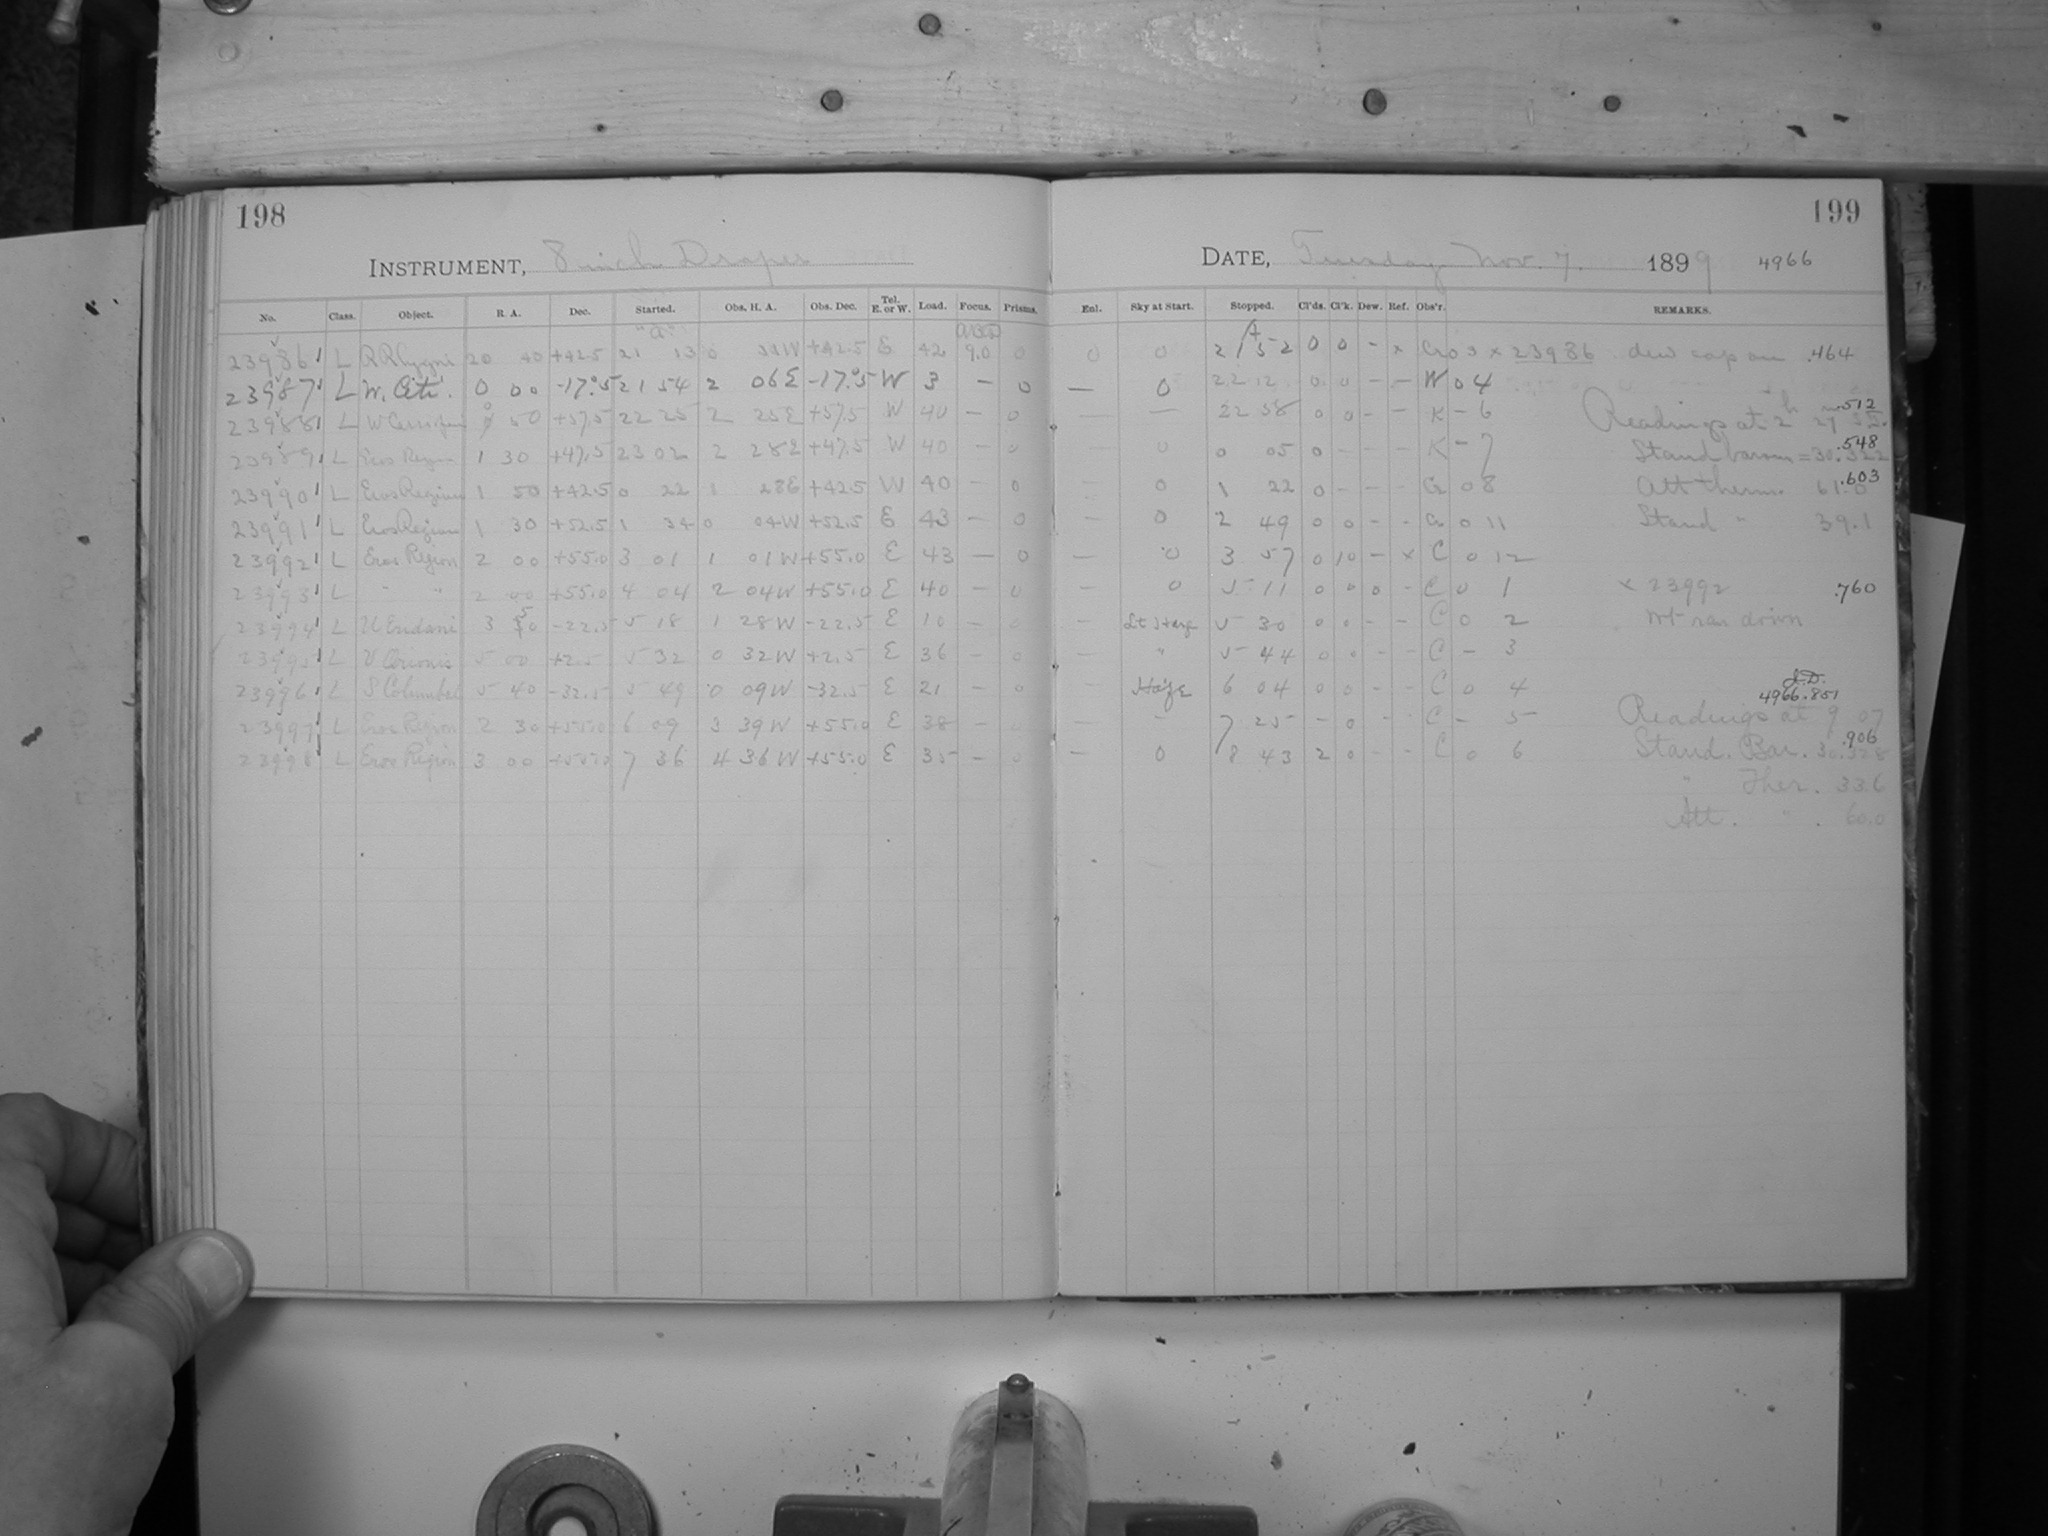 198
199
INSTRUMENT, 8 inch Draper
DATE, Tuesday Nov. 7. 1899 4966
No. Class. Object. R. A. Dec. Started. Obs. H. A. Obs. Dec. Tel. E. or W. Load. Focus. Prisms. Enl. Sky at Start. Stopped. Cl'ds. Cl'k. Dew. Ref. Obs'r. REMARKS.
23986 L RR Lygni 20 40 +42.5 21 13 0 +42.5 E 42 9.0 0 0 0 21 52 0 0 - x G 0 3 x 23986 dew cap on .464
23987 L W. Ceti. 0 00 -17.5 21 54 2 06E -17.5 W 3 - 0 - 0 22 12 0 0 - - W 0 4
23988 L W Cassiopeia 0 50 +57.5 22 25 2 25E +57.5 W 40 - 0 - 22 58 0 0 - - K - 6 Readings at 2h 27 .512
23989 L Eros Region 1 30 +47.5 23 02 2 28E +47.5 W 40 - 0 - 0 0 05 0 - - - K - 7 Stand barom = 30.322 .548
23990 L Eros Region 1 50 +42.5 0 22 1 28E +42.5 W 40 - 0 - 0 1 22 0 - - - G 0 8 Att therm. 61.0 .603
23991 L Eros Region 1 30 +52.5 1 34 0 04W +52.5 E 43 - 0 - 0 2 49 0 0 - - G 0 11 Stand " 39.1
23992 L Eros Region 2 00 +55.0 3 01 1 01W +55.0 E 43 - 0 - 0 3 57 0 10 - x C 0 12
23993 L " " 2 00 +55.0 4 04 2 04W +55.0 E 40 - 0 - 0 5 11 0 0 0 - C 0 1 x 23992 .760
23994 L U Eridani 3 50 -22.5 5 18 1 28W -22.5 E 10 - 0 - Lt Haze 5 30 0 0 - - C 0 2 wt ran down
23995 L V Orionis 5 00 +2.5 5 32 0 32W +2.5 E 36 - 0 - " 5 44 0 0 - - C - 3
23996 L S Columbae 5 40 -32.5 5 49 0 09W -32.5 E 21 - 0 - Haze 6 04 0 0 - - C 0 4 J.D. 4966.851
23997 L Eros Region 2 30 +55.0 6 09 3 39W +55.0 E 38 - - - 7 25 - 0 - - C - 5 Readings at 9 07
23998 L Eros Region 3 00 +55.0 7 36 4 36W +55.0 E 35 - 0 - 0 8 43 2 0 - - C 0 6 Stand. Bar. 30.328 .906
" Ther. 33.6
Att. " . 60.0